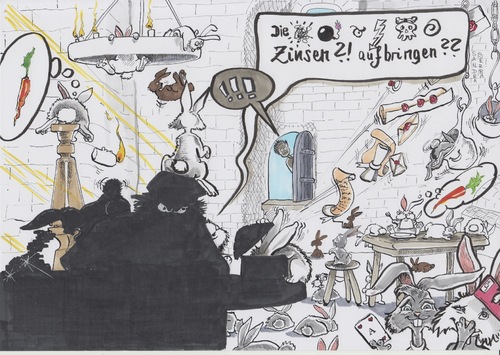 Die
Zinsen ?! aufbringen??
!!!
A